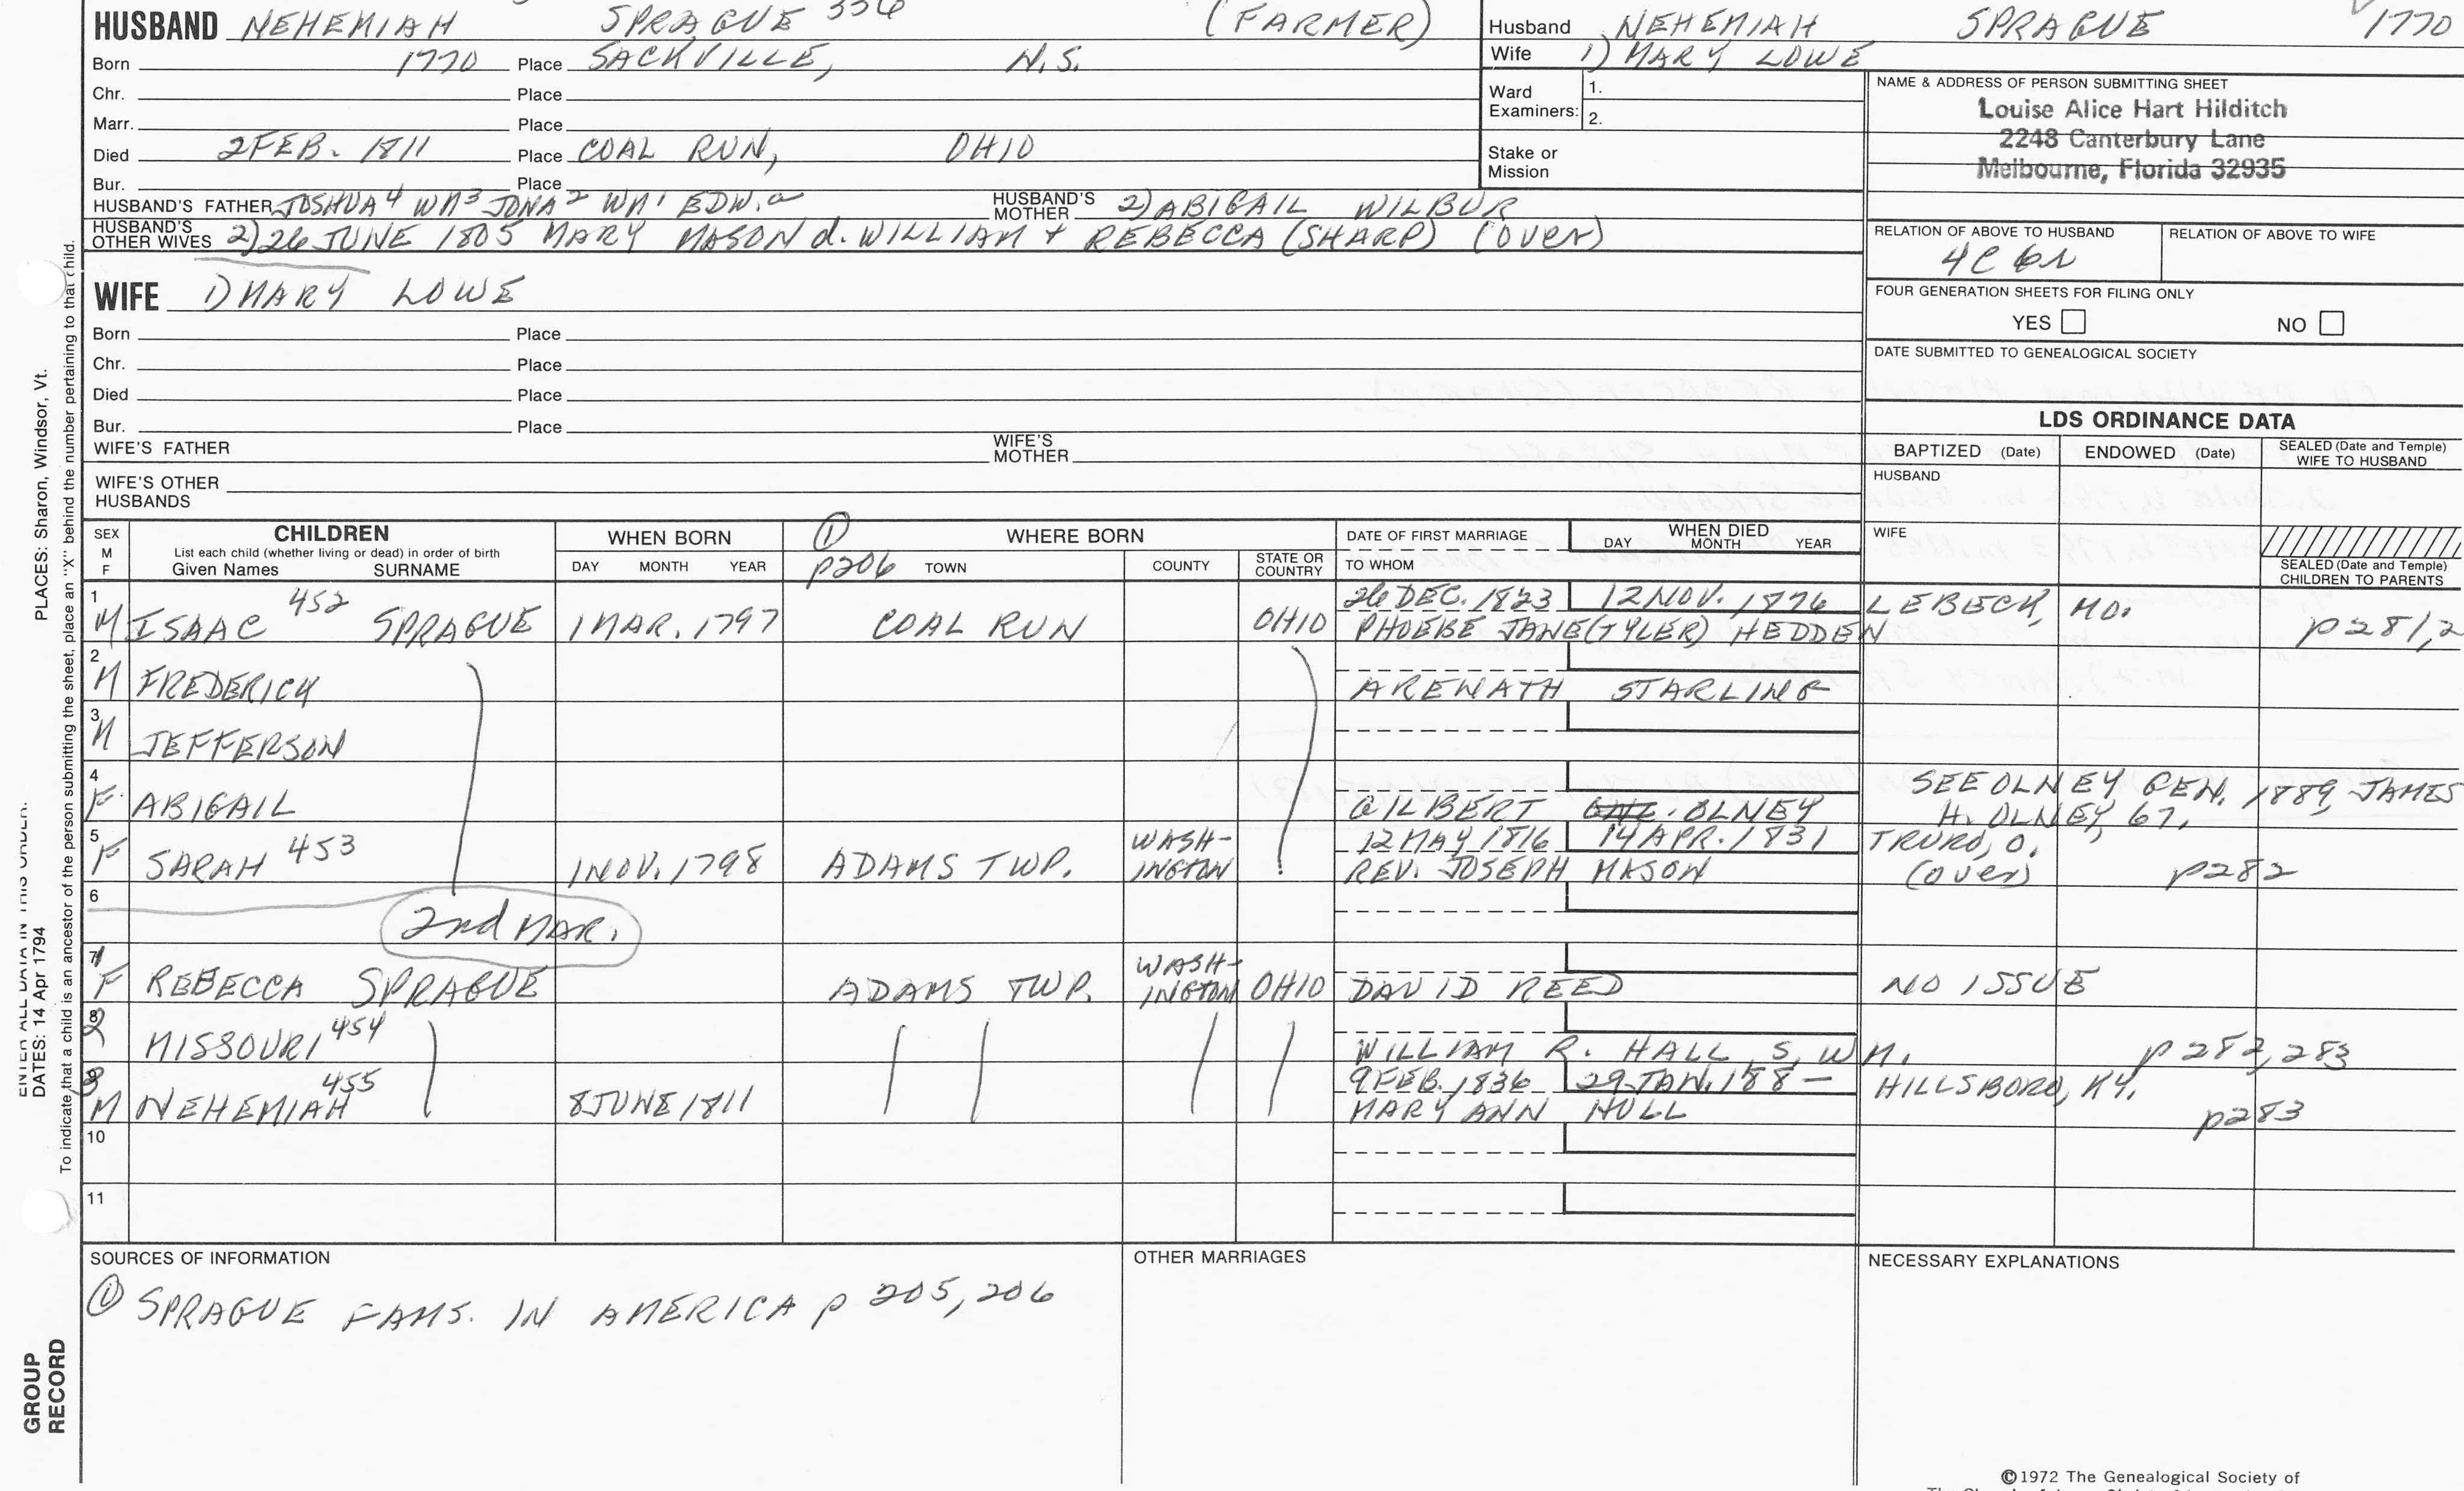 HUSBAND NEHEMIAH SPRAGUE 336 (FARMER)
Born 1770 Place SACKVILLE, N.S.
Chr. Place
Marr. Place
Died 2 FEB. 1811 Place COAL RUN, OHIO
Bur. Place
HUSBAND'S FATHER JOSHUA 4 WM 3 JONA 2 WM 1 EDW. a HUSBAND'S MOTHER 2) ABIGAIL WILBUR
HUSBAND'S OTHER WIVES 2) 26 JUNE 1805 MARY MASON d. WILLIAM + REBECCA (SHARP) (over)
Husband NEHEMIAH SPRAGUE 1770
Wife 1) MARY LOWE
Ward Examiners: 1.
2.
Stake or Mission
NAME & ADDRESS OF PERSON SUBMITTING SHEET
Louise Alice Hart Hilditch
2248 Canterbury Lane
Melbourne, Florida 32935
RELATION OF ABOVE TO HUSBAND RELATION OF ABOVE TO WIFE
4C 6R
FOUR GENERATION SHEETS FOR FILING ONLY
YES NO
DATE SUBMITTED TO GENEALOGICAL SOCIETY
WIFE 1) MARY LOWE
Born Place
Chr. Place
Died Place
Bur. Place
WIFE'S FATHER WIFE'S MOTHER
WIFE'S OTHER HUSBANDS
LDS ORDINANCE DATA
BAPTIZED (Date) ENDOWED (Date) SEALED (Date and Temple) WIFE TO HUSBAND
HUSBAND
WIFE
SEALED (Date and Temple) CHILDREN TO PARENTS
SEX M F
CHILDREN
List each child (whether living or dead) in order of birth
Given Names SURNAME
WHEN BORN
DAY MONTH YEAR
① p206
WHERE BORN
TOWN COUNTY STATE OR COUNTRY
DATE OF FIRST MARRIAGE
TO WHOM
WHEN DIED
DAY MONTH YEAR
1 26 DEC. 1823 12 NOV. 1876 LEBECK, MO.
M ISAAC 452 SPRAGUE 1 MAR. 1797 COAL RUN OHIO PHOEBE JANE (TYLER) HEDDEN p281,2
2
M FREDERICK ARENATH STARLING
3
M JEFFERSON
4 SEE OLNEY GEN. 1889, JAMES
F ABIGAIL GILBERT OLNEY H. OLNEY, 67.
5 WASH- 12 MAY 1816 14 APR. 1831 TRURO, O.
F SARAH 453 1 NOV. 1798 ADAMS TWP. INGTON REV. JOSEPH MASON (over) p282
6
2nd MAR.
7 1 WASH-
F REBECCA SPRAGUE ADAMS TWP. INGTON OHIO DAVID REED NO ISSUE
8 2
MISSOURI 454 WILLIAM R. HALL, S, WM. p282,283
9 3 9 FEB. 1836 29 JAN. 188— HILLSBORO, KY.
M NEHEMIAH 455 8 JUNE 1811 MARY ANN HULL p283
10
11
SOURCES OF INFORMATION
① SPRAGUE FAMS. IN AMERICA p 205, 206
OTHER MARRIAGES
NECESSARY EXPLANATIONS
©1972 The Genealogical Society of
PLACES: Sharon, Windsor, Vt.
To indicate that a child is an ancestor of the person submitting the sheet, place an "X" behind the number pertaining to that child.
ENTER ALL DATA IN THIS ORDER:
DATES: 14 Apr 1794
GROUP RECORD